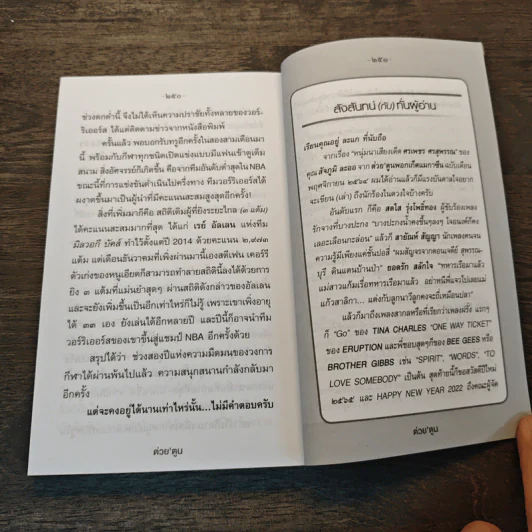 -๒๕๐-
ช่วงตกต่ำนี้ จึงไม่ได้เห็นความปราชัยทั้งหลายของวอร์-
ริเออร์ส ได้แต่ติดตามข่าวจากหนังสือพิมพ์
ครั้นแล้ว พอบอกรับทรูอีกครั้งในสองสามเดือนมา
นี้ พร้อมกับกีฬาทุกชนิดเปิดแข่งแบบมีแฟนเข้าดูเต็ม
สนาม สิ่งอัศจรรย์ก็เกิดขึ้น คือจากทีมอันดับต่ำสุดใน NBA
ขณะนี้ที่การแข่งขันดำเนินไปครึ่งทาง ทีมวอร์ริเออร์สได้
ผงาดขึ้นมาเป็นผู้นำที่มีคะแนนสะสมสูงสุดอีกครั้ง!
สิ่งที่เพิ่มมาก็คือ สถิติเดิมผู้ที่ยิงระยะไกล (๓ แต้ม)
ได้คะแนนสะสมมากที่สุด ได้แก่ เรย์ อัลเลน แห่งทีม
มิลวอกี บัคส์ ทำไว้ตั้งแต่ปี 2014 ด้วยคะแนน ๒,๙๗๓
แต้ม แต่เดือนธันวาคมที่เพิ่งผ่านมานี้เองสตีเฟน เคอร์รี
ตัวเก่งของหนูเอียดก็สามารถทำลายสถิตินี้ลงได้ด้วยการ
ยิง ๓ แต้มที่แม่นยำสุดๆ ผ่านสถิติดังกล่าวของอัลเลน
และจะยังเพิ่มขึ้นเป็นอีกเท่าไรก็ไม่รู้ เพราะเขาเพิ่งอายุ
ได้ ๓๓ เอง ยังเล่นได้อีกหลายปี และปีนี้ก็อาจนำทีม
วอร์ริเออร์สของเขาขึ้นสู่แชมป์ NBA อีกครั้งด้วย
สรุปได้ว่า ช่วงสองปีแห่งความมืดมนของวงการ
กีฬาได้ผ่านพ้นไปแล้ว ความสนุกสนานกำลังกลับมา
อีกครั้ง
แต่จะคงอยู่ได้นานเท่าไหร่นั้น...ไม่มีคำตอบครับ
ต่วย'ตูน
-๒๕๑-
สังสันทน์ (กับ) ท่านผู้อ่าน
เรียนคุณอยู่ ละแก ที่นับถือ
จากเรื่อง "หนุ่มนาเสียงเด็ด ศรเพชร ศรสุพรรณ" ของ
คุณ สังคูมิ ละออ จาก ต่วย'ตูนพอกเก็ตแมกาซีน ฉบับเดือน
พฤศจิกายน ๒๕๖๔ ผมได้อ่านแล้วก็มีแรงบันดาลใจอยาก
จะเขียน (เล่า) ถึงนักร้องในดวงใจบ้างครับ
อันดับแรก ก็คือ สดใส รุ่งโพธิ์ทอง ผู้ขับร้องเพลง
รักจางที่บางปะกง "บางปะกงน้ำคงขึ้นๆลงๆ ใจอนงค์ก็คง
เลอะเลือนกะล่อน" แล้วก็ สายัณห์ สัญญา นักเพลงคน
ความรู้มีเพียงแค่ชั้นปอสี่ "ผมสัญจรจากดอนเจดีย์ สุพรรณ-
บุรี ดินแดนบ้านป่า" ยอดรัก สลักใจ "ทหารเรือมาแล้ว
แม่สาวแก้มเรื่อทหารเรือมาแล้ว อย่าหนีพี่แจวไปเลยแม่
แก้วสาลิกา... แต่งกับลูกนาวีลูกคงจะขี่เหมือนปลา"
แล้วก็มาถึงเพลงสากลหรือที่เรียกว่าเพลงฝรั่ง แรกๆ
ก็ "Go" ของ TINA CHARLES "ONE WAY TICKET"
ของ ERUPTION และพี่ชอบสุดๆก็ของ BEE GEES หรือ
BROTHER GIBBS เช่น "SPIRIT", "WORDS", "TO
LOVE SOMEBODY" เป็นต้น สุดท้ายนี้ก็ขอสวัสดีปีใหม่
๒๕๖๕ และ HAPPY NEW YEAR 2022 ถึงคณะผู้จัด
ต่วย'ตูน